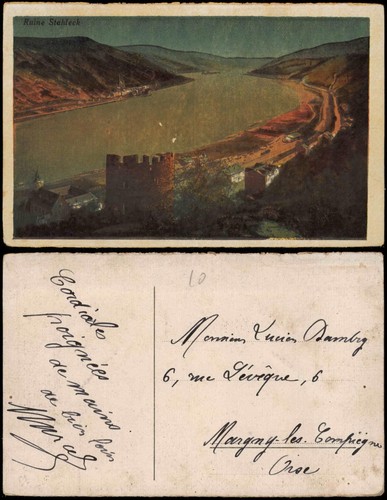 Ruine Stahleck
10
Cordiale
poignées
de mains
de bien loin
Monsieur Lucien Dambry
6, rue Lévêque, 6
Margny-les-Compiègne
Oise